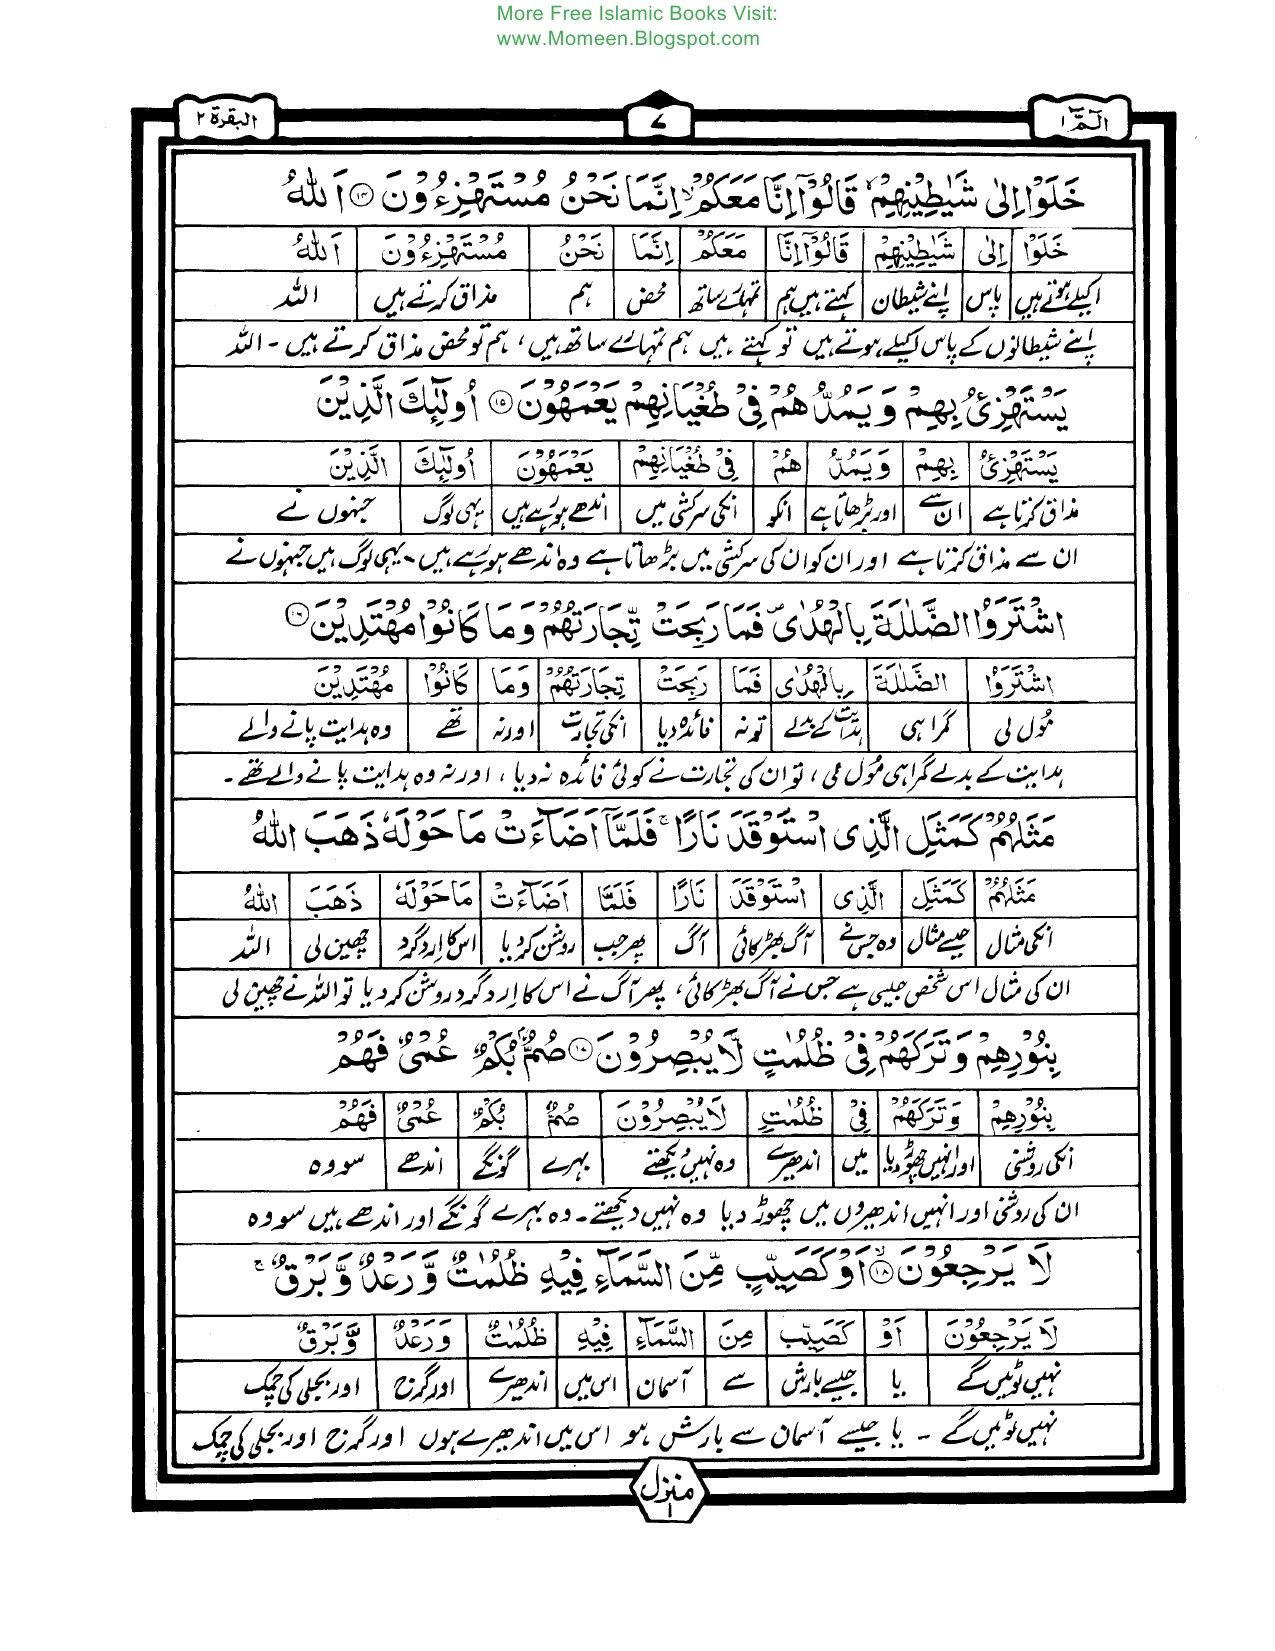 More Free Islamic Books Visit:
www.Momeen.Blogspot.com
الٓمّٓ ۱
۷
البقرة ۲
خَلَوْا اِلٰى شَيٰطِيْنِهِمْ ۙ قَالُوْٓا اِنَّا مَعَكُمْ ۙ اِنَّمَا نَحْنُ مُسْتَهْزِءُوْنَ ﴿۱۴﴾ اَللّٰهُ
خَلَوْا اِلٰى شَيٰطِيْنِهِمْ قَالُوْٓا اِنَّا مَعَكُمْ اِنَّمَا نَحْنُ مُسْتَهْزِءُوْنَ اَللّٰهُ
اکیلے ہوتے ہیں پاس اپنے شیطان کہتے ہیں ہم تمہارے ساتھ محض ہم مذاق کرتے ہیں اللہ
اپنے شیطانوں کے پاس اکیلے ہوتے ہیں تو کہتے ہیں ہم تمہارے ساتھ ہیں، ہم تو محض مذاق کرتے ہیں۔ اللہ
يَسْتَهْزِئُ بِهِمْ وَيَمُدُّ هُمْ فِيْ طُغْيَانِهِمْ يَعْمَهُوْنَ ﴿۱۵﴾ اُولٰٓئِكَ الَّذِيْنَ
يَسْتَهْزِئُ بِهِمْ وَيَمُدُّ هُمْ فِيْ طُغْيَانِهِمْ يَعْمَهُوْنَ اُولٰٓئِكَ الَّذِيْنَ
مذاق کرتا ہے ان سے اور بڑھاتا ہے انکو انکی سرکشی میں اندھے ہو رہے ہیں یہی لوگ جنہوں نے
ان سے مذاق کرتا ہے اور ان کو ان کی سرکشی میں بڑھاتا ہے وہ اندھے ہو رہے ہیں۔ یہی لوگ ہیں جنہوں نے
اشْتَرَوُا الضَّلٰلَةَ بِالْهُدٰى ۪ فَمَا رَبِحَتْ تِّجَارَتُهُمْ وَمَا كَانُوْا مُهْتَدِيْنَ ﴿۱۶﴾
اشْتَرَوُا الضَّلٰلَةَ بِالْهُدٰى فَمَا رَبِحَتْ تِجَارَتُهُمْ وَمَا كَانُوْا مُهْتَدِيْنَ
مول لی گمراہی ہدایت کے بدلے تو نہ فائدہ دیا انکی تجارت اور نہ تھے وہ ہدایت پانے والے
ہدایت کے بدلے گمراہی مول لی، تو ان کی تجارت نے کوئی فائدہ نہ دیا، اور نہ وہ ہدایت پانے والے تھے۔
مَثَلُهُمْ كَمَثَلِ الَّذِى اسْتَوْقَدَ نَارًا ۚ فَلَمَّآ اَضَآءَتْ مَا حَوْلَهٗ ذَهَبَ اللّٰهُ
مَثَلُهُمْ كَمَثَلِ الَّذِى اسْتَوْقَدَ نَارًا فَلَمَّآ اَضَآءَتْ مَا حَوْلَهٗ ذَهَبَ اللّٰهُ
انکی مثال جیسے مثال وہ جس نے آگ بھڑکائی آگ پھر جب روشن کر دیا اس کا اردگرد چھین لی اللہ
ان کی مثال اس شخص جیسی ہے جس نے آگ بھڑکائی، پھر آگ نے اس کا اردگرد روشن کر دیا تو اللہ نے چھین لی
بِنُوْرِهِمْ وَتَرَكَهُمْ فِيْ ظُلُمٰتٍ لَّا يُبْصِرُوْنَ ﴿۱۷﴾ صُمٌّۢ بُكْمٌ عُمْىٌ فَهُمْ
بِنُوْرِهِمْ وَتَرَكَهُمْ فِيْ ظُلُمٰتٍ لَا يُبْصِرُوْنَ صُمٌّ بُكْمٌ عُمْىٌ فَهُمْ
انکی روشنی اور انہیں چھوڑ دیا میں اندھیرے وہ نہیں دیکھتے بہرے گونگے اندھے سو وہ
ان کی روشنی اور انہیں اندھیروں میں چھوڑ دیا وہ نہیں دیکھتے۔ وہ بہرے گونگے اور اندھے ہیں سو وہ
لَا يَرْجِعُوْنَ ﴿۱۸﴾ ۙ اَوْ كَصَيِّبٍ مِّنَ السَّمَآءِ فِيْهِ ظُلُمٰتٌ وَّرَعْدٌ وَّبَرْقٌ ۚ
لَا يَرْجِعُوْنَ اَوْ كَصَيِّبٍ مِنَ السَّمَآءِ فِيْهِ ظُلُمٰتٌ وَرَعْدٌ وَّبَرْقٌ
نہیں لوٹیں گے یا جیسے بارش سے آسمان اس میں اندھیرے اور گرج اور بجلی کی چمک
نہیں لوٹیں گے۔ یا جیسے آسمان سے بارش ہو اس میں اندھیرے ہوں اور گرج اور بجلی کی چمک
منزل ۱